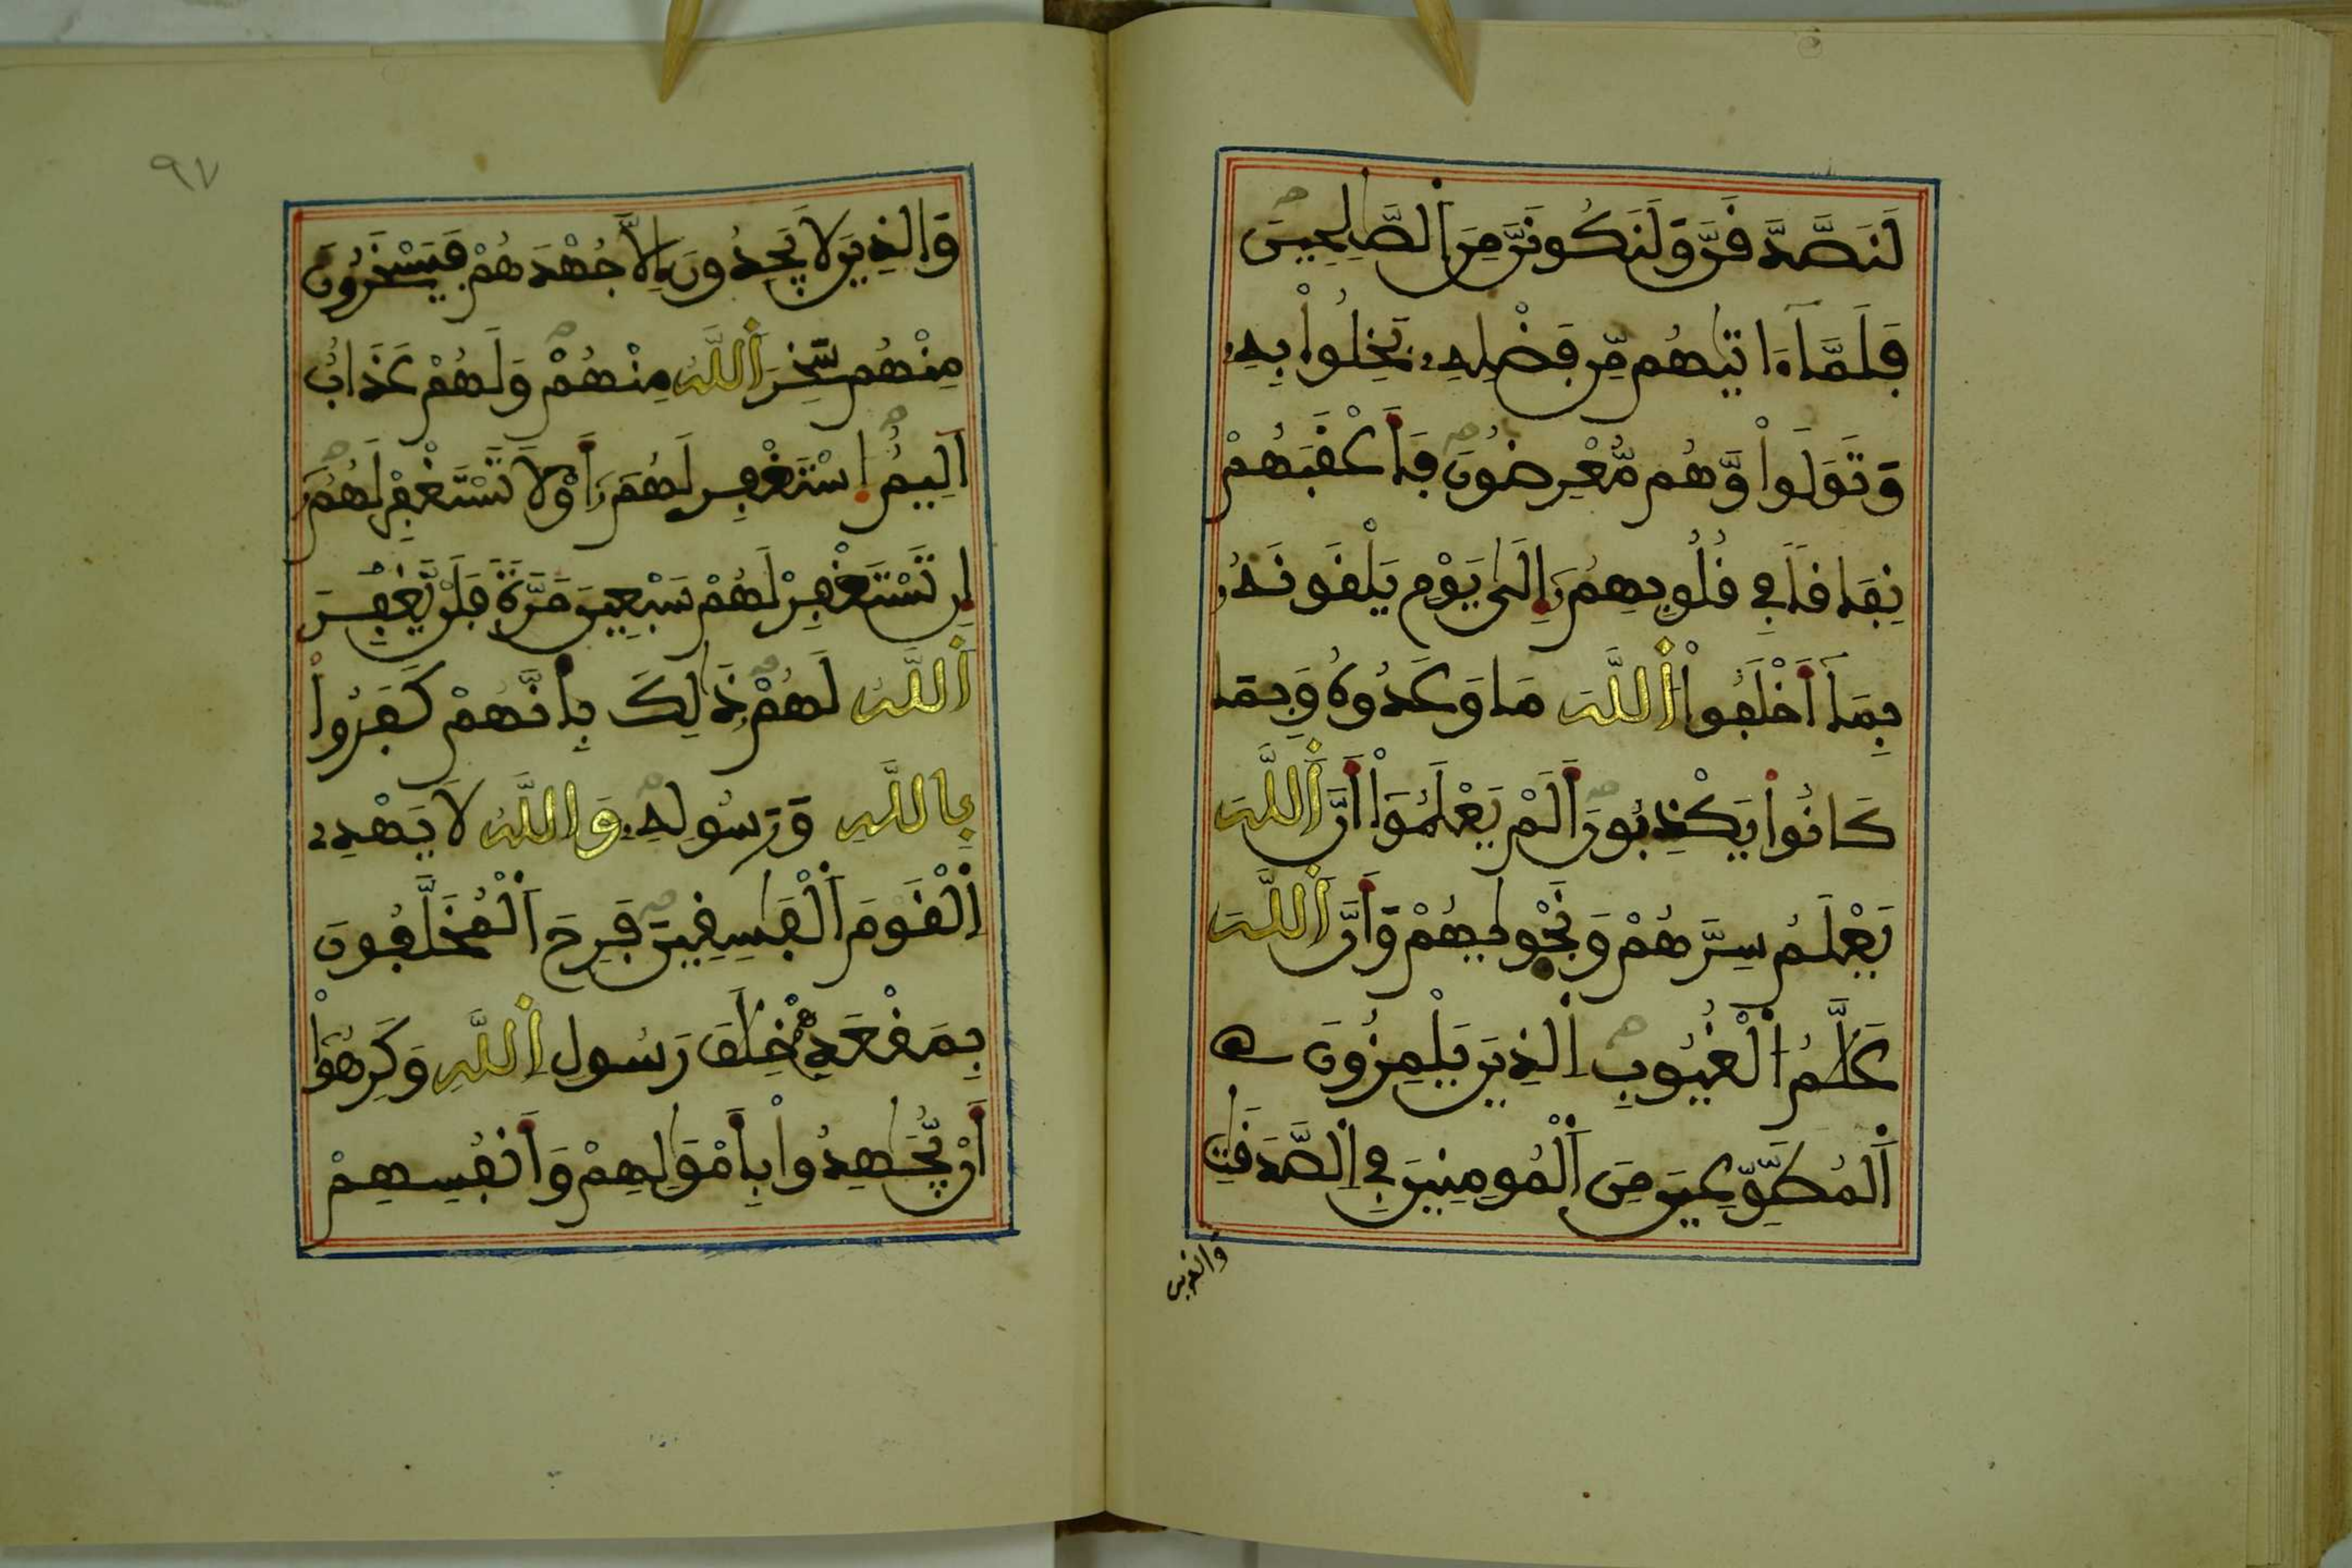 لَنَصَّدَّقَنَّ وَلَنَكُونَنَّ مِنَ ٱلصَّٰلِحِينَ
فَلَمَّآ ءَاتَيٰهُم مِّن فَضْلِهِۦ بَخِلُواْ بِهِۦ
وَتَوَلَّواْ وَّهُم مُّعْرِضُونَ فَأَعْقَبَهُمْ
نِفَاقاٗ فِي قُلُوبِهِمُۥٓ إِلَىٰ يَوْمِ يَلْقَوْنَهُۥ
بِمَآ أَخْلَفُواْ ٱللَّهَ مَا وَعَدُوهُ وَبِمَا
كَانُواْ يَكْذِبُونَ أَلَمْ يَعْلَمُوٓاْ أَنَّ ٱللَّهَ
يَعْلَمُ سِرَّهُمْ وَنَجْوٜيٰهُمْ وَأَنَّ ٱللَّهَ
عَلَّٰمُ ٱلْغُيُوبِ ٱلذِينَ يَلْمِزُونَ
ٱلْمُطَّوِّعِينَ مِنَ ٱلْمُومِنِينَ فِي ٱلصَّدَقَٰتِ
والذين
٩٧
وَالذِينَ لَا يَجِدُونَ إِلَّا جُهْدَهُمْ فَيَسْخَرُونَ
مِنْهُمْ سَخِرَ ٱللَّهُ مِنْهُمْ وَلَهُمْ عَذَابٌ
اَلِيمٌ ٱسْتَغْفِرْ لَهُمُۥٓ أَوْ لَا تَسْتَغْفِرْ لَهُمُۥٓ
إِن تَسْتَغْفِرْ لَهُمْ سَبْعِينَ مَرَّةٗ فَلَنْ يَّغْفِرَ
ٱللَّهُ لَهُمْ ذَٰلِكَ بِأَنَّهُمْ كَفَرُواْ
بِاللَّهِ وَرَسُولِهِۦ وَاللَّهُ لَا يَهْدِے
ٱلْقَوْمَ ٱلْفَٰسِقِينَ فَرِحَ ٱلْمُخَلَّفُونَ
بِمَقْعَدِهِمْ خِلَٰفَ رَسُولِ ٱللَّهِ وَكَرِهُوٓاْ
أَنْ يُّجَٰهِدُواْ بِأَمْوَٰلِهِمْ وَأَنفُسِهِمْ